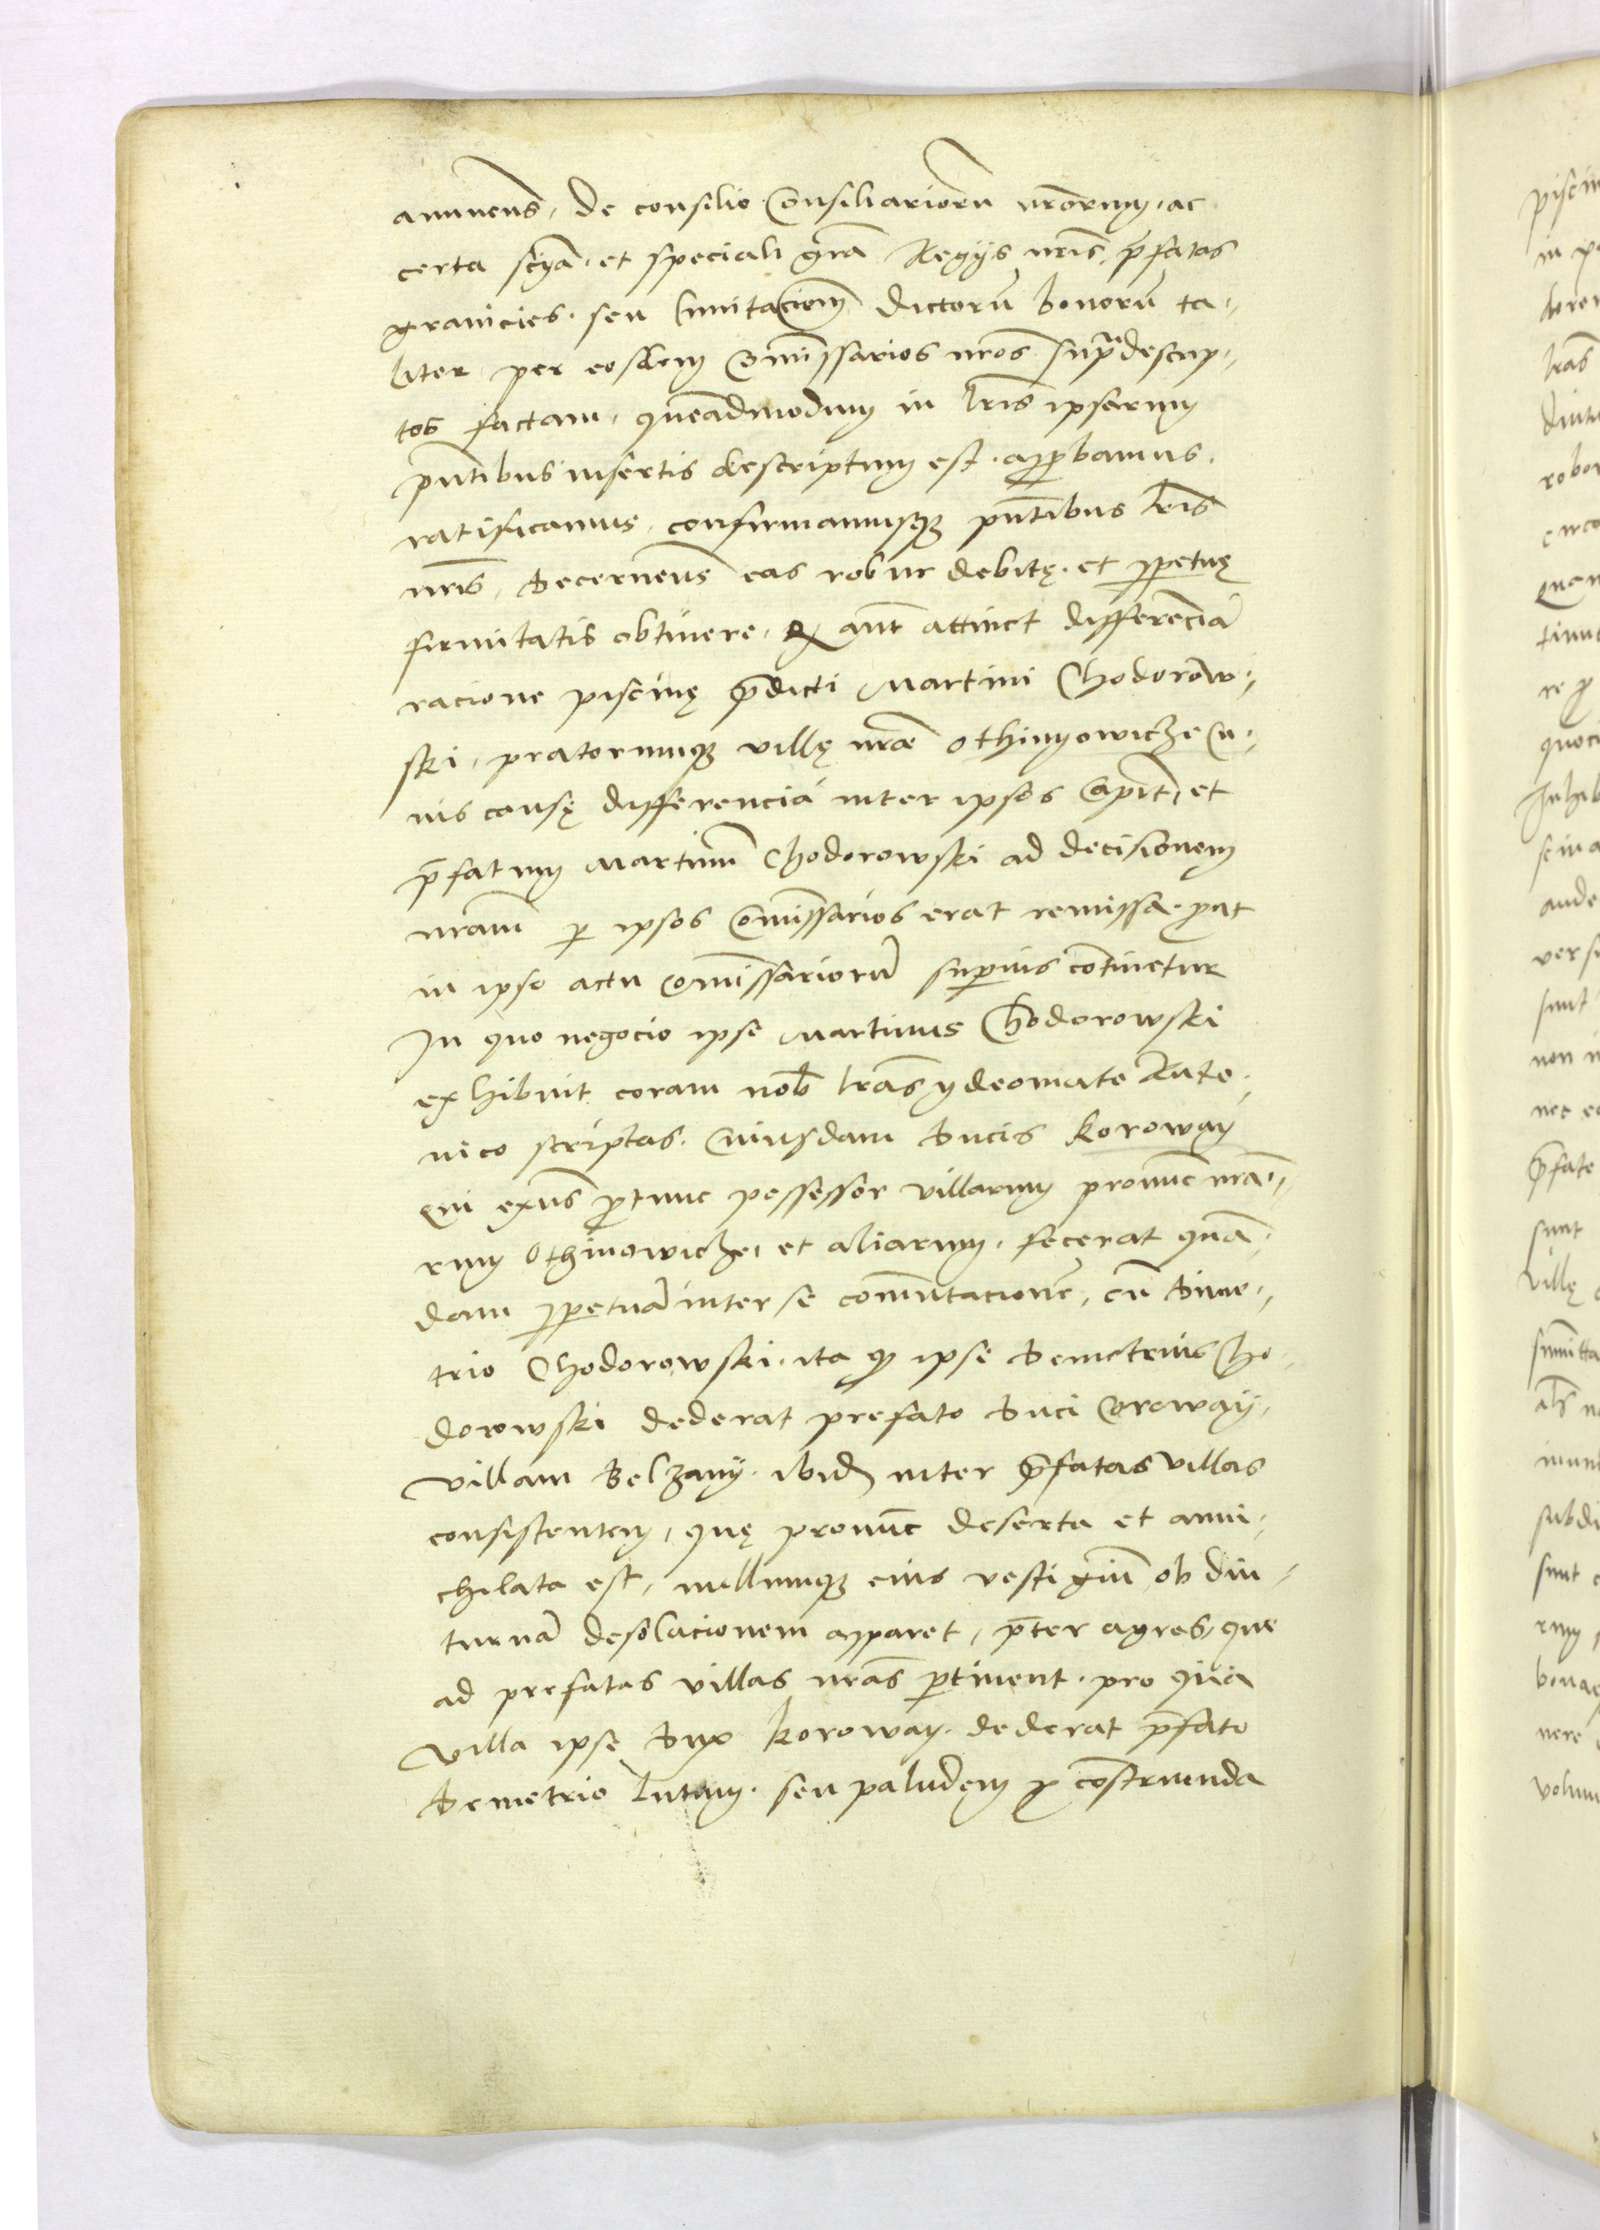 annuens, de consilio Consiliarioru nrorum, ac
certa scia, et speciali gra Regijs nris, pfatas
granicies, seu limitacionem dictoru bonoru ta-
liter per eosdem Comissarios nros supradescrip-
tos factam, quemadmodum in lris ipsarum
pntibus insertis descriptum est, approbamus,
ratificamus, confirmamusque pntibus lris
nris, Decernens eas robur debitę et ppetuę
firmitatis obtinere, Q aut attinet differencia
racione piscinę pdicti Martini Chodorow-
ski, pratorumque villę nrae Othinyowicze Cu-
ius causę differencia inter ipsos Capit, et
pfatum Martinum Chodorowski ad decisionem
nram p ipsos Comissarios erat remissa, prout
in ipso actu Comissarioru superius continetur
In quo negocio ipse Martinus Chodorowski
exhibuit coram nob lras ydeomate Rute-
nico scriptas, Cuiusdam Ducis Koroway
Qui exns ptunc possessor villarum pronunc nra-
rum Othinowicze, et aliarum, fecerat quan-
dam ppetua inter se comutacione, cu Dime-
trio Chodorowski, ita q ipse Demetrius Cho-
dorowski dederat prefato Duci Coroway,
villam Belzany, ibid inter pfatas villas
consistentem, quę pronunc deserta et anni-
chilata est, nullumque eius vestigiu ob diu-
turna desolacionem apparet, pter agros, que
ad prefatas villas nras ptinent, pro qua
villa ipse Dux Koroway, dederat pfato
Demetrio lutum, seu paludem p costruenda